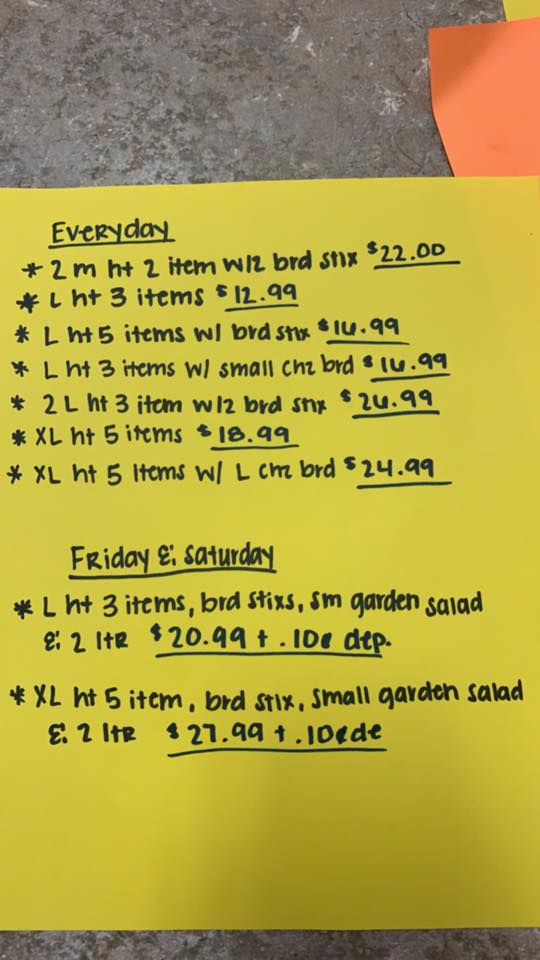 Everyday
* 2 m ht 2 item w/2 brd stix $22.00
* L ht 3 items $12.99
* L ht 5 items w/ brd stix $16.99
* L ht 3 items w/ small chz brd $16.99
* 2 L ht 3 item w/2 brd stix $26.99
* XL ht 5 items $18.99
* XL ht 5 items w/ L chz brd $24.99
Friday & Saturday
* L ht 3 items, brd stixs, sm garden salad
& 2 ltr $20.99 + .10¢ dep.
* XL ht 5 item, brd stix, small garden salad
& 2 ltr $27.99 + .10¢ de